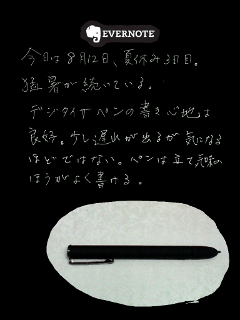 EVERNOTE
今日は8月12日、夏休み3日目。
猛暑が続いている。
デジタイザペンの書き心地は
良好。少し遅れが出るが気になる
ほどではない。ペンは立て気味の
ほうがよく書ける。